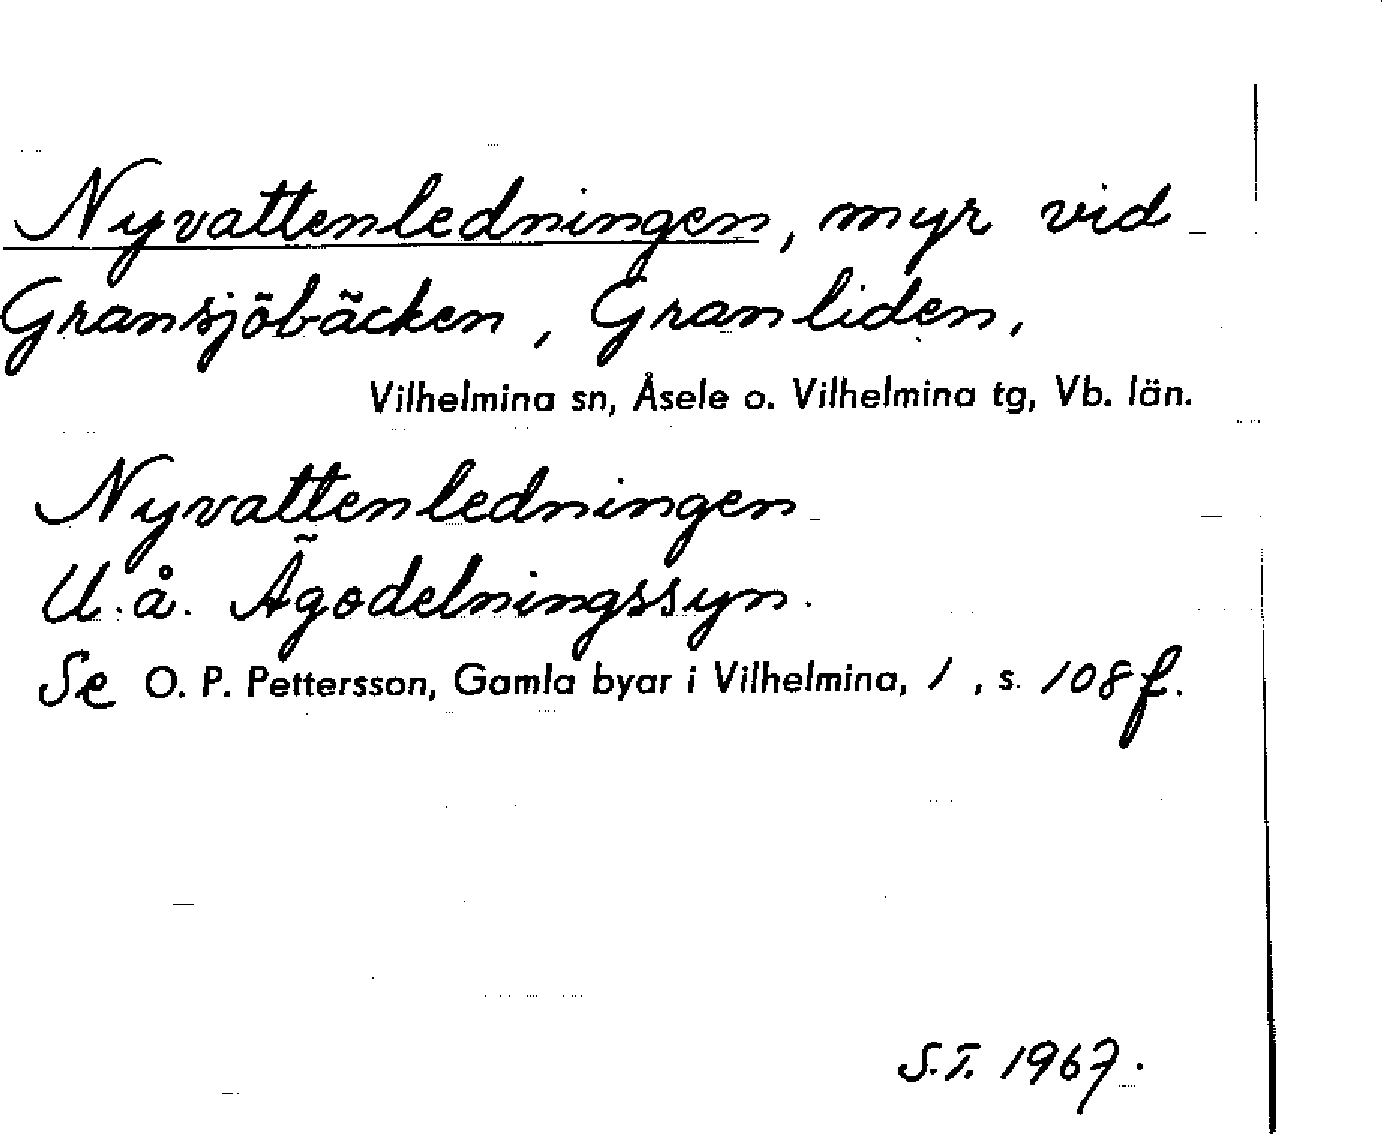 Nyvattenledningen, myr vid
Gransjöbäcken, Granliden,
Vilhelmina sn, Åsele o. Vilhelmina tg, Vb. län.
Nyvattenledningen
U.å. Ägodelningssyn.
Se O. P. Pettersson, Gamla byar i Vilhelmina, 1, s. 108 f.
S.T. 1967.